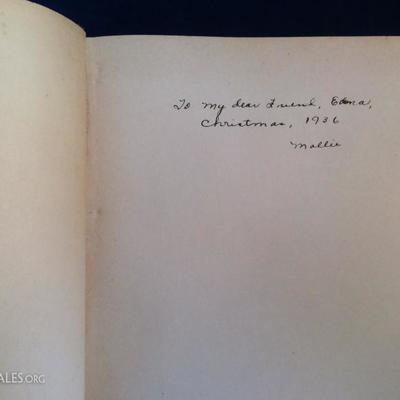 To my dear Friend, Edna,
Christmas, 1936
Mollie
ALES.ORG